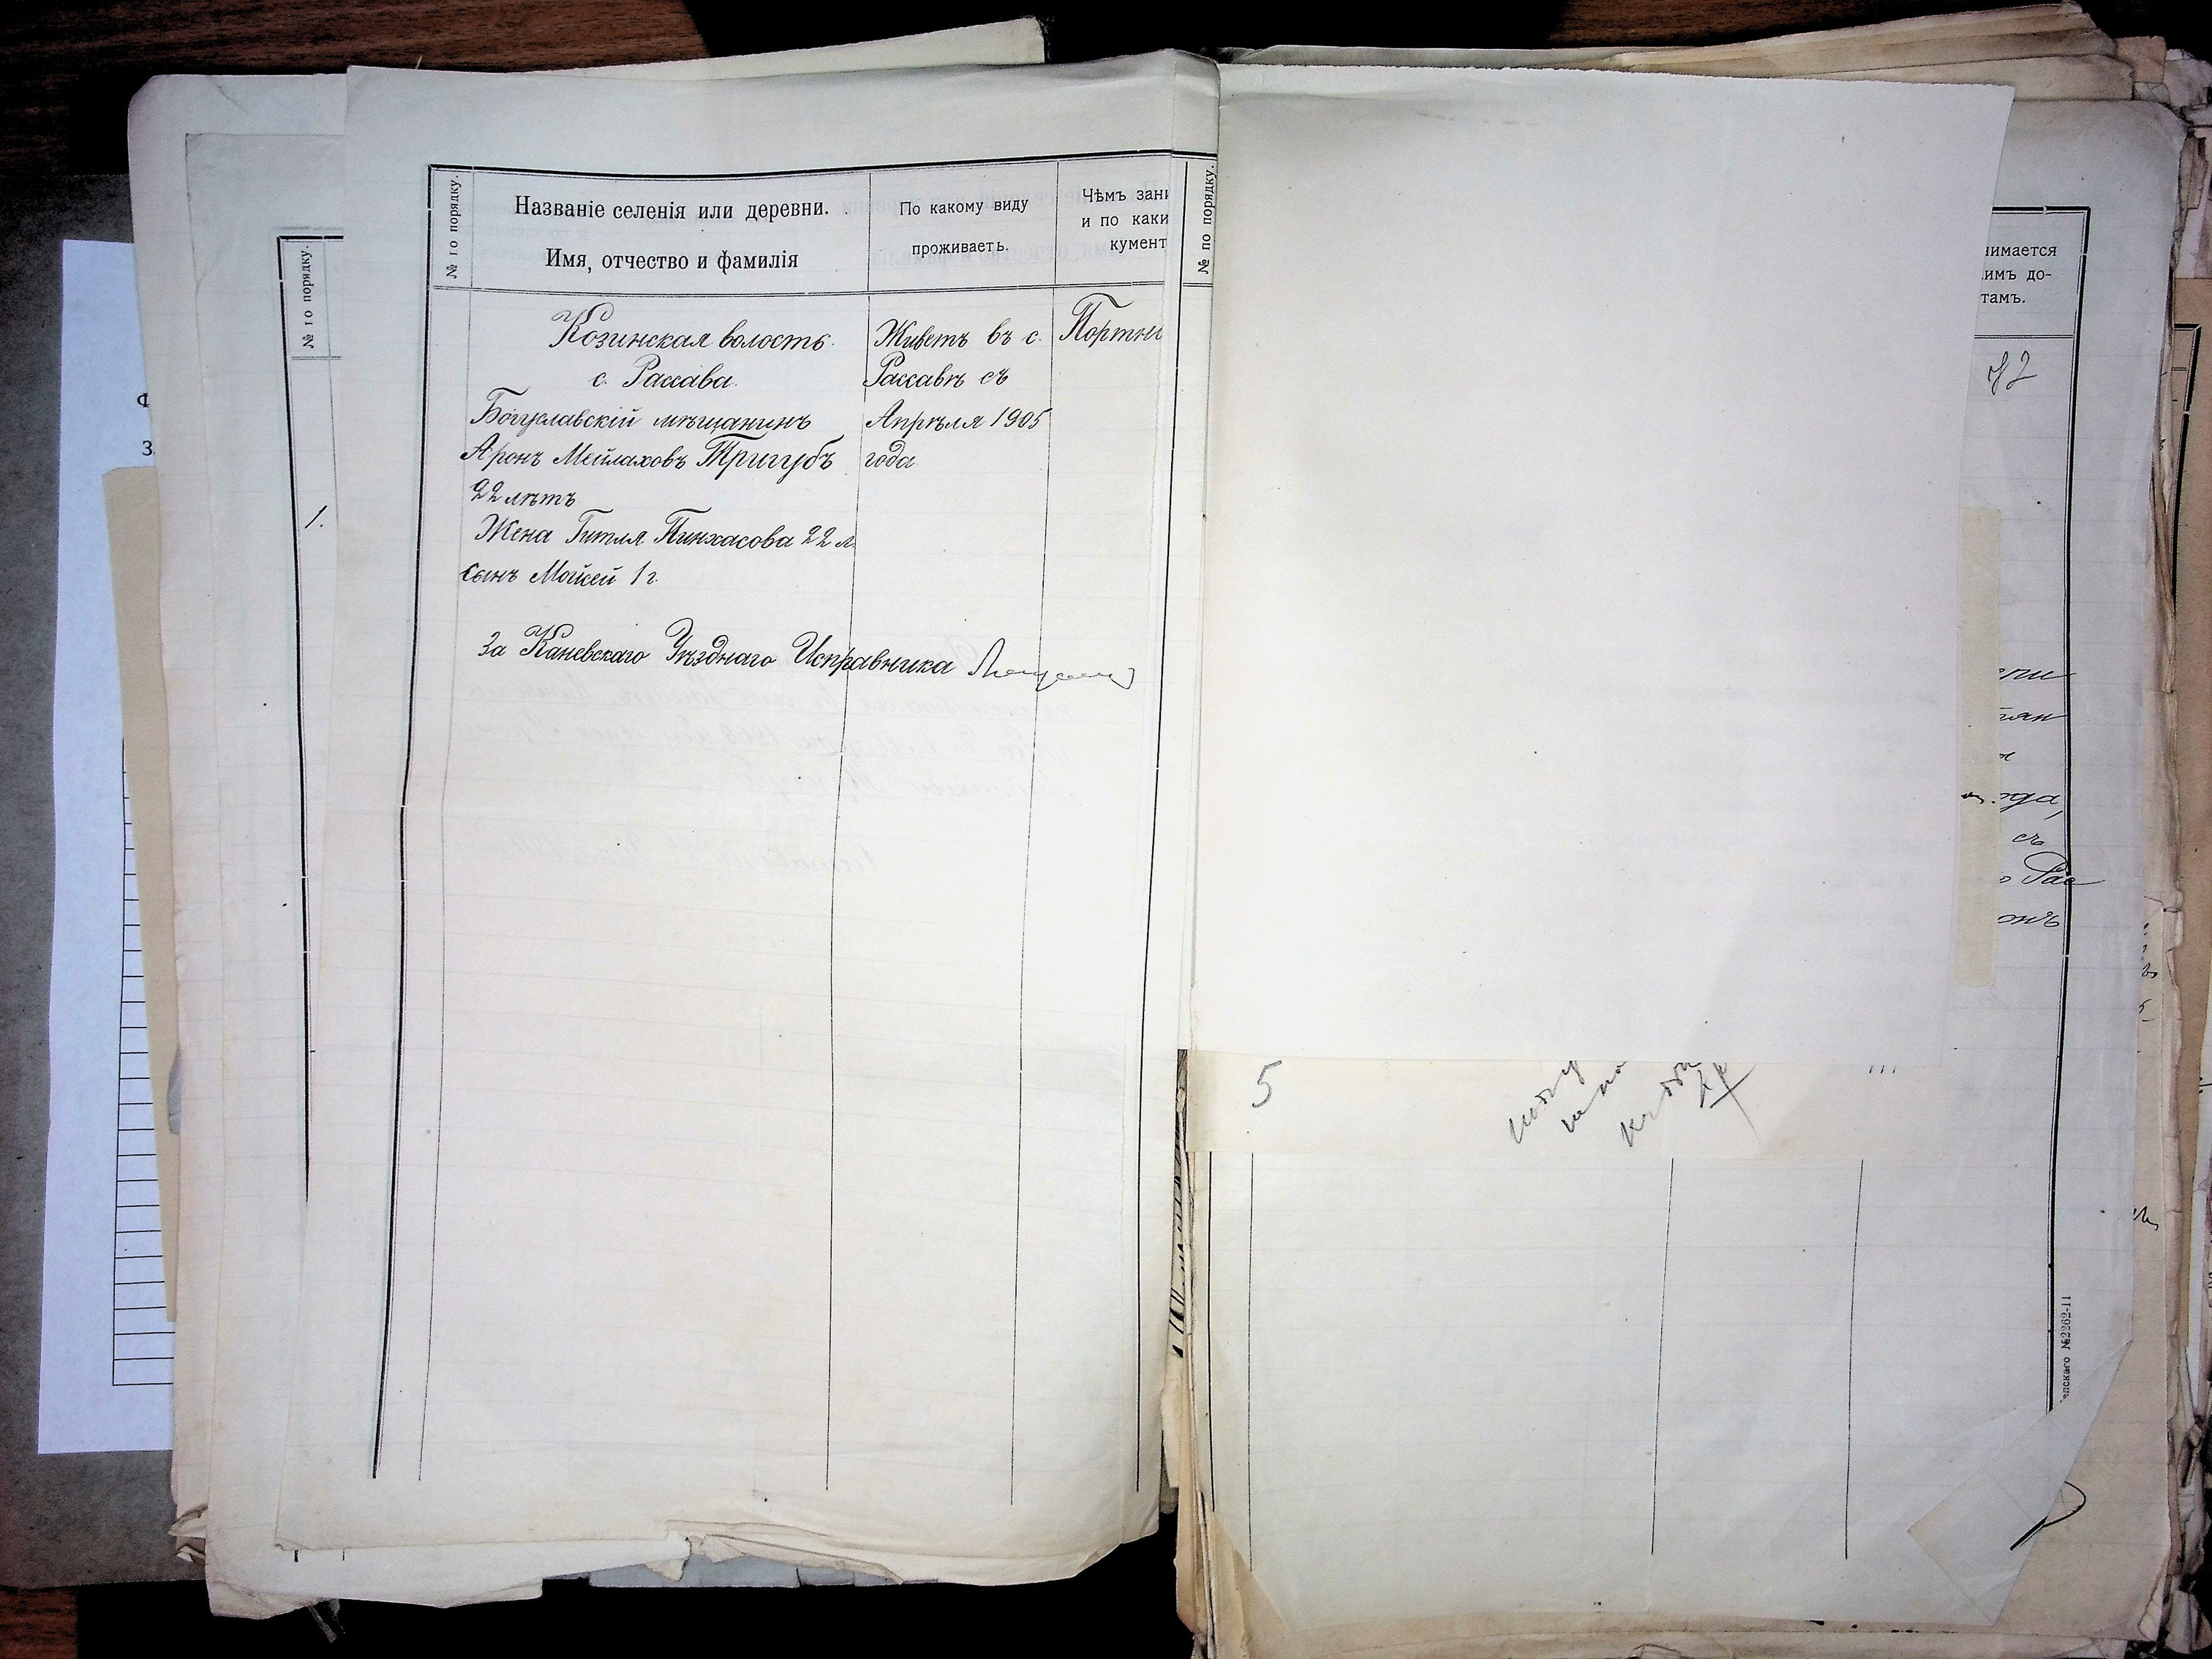 № по порядку.
Названіе селенія или деревни.
Имя, отчество и фамилія
По какому виду
проживаетъ.
Чѣмъ зани
и по каки
кумент
Козинская волость.
с. Рассава.
Богуславскій мѣщанинъ
Аронъ Мейлаховъ Тригубъ
22 лѣтъ
Жена Гитля Пинхасова 22 л.
сынъ Мойсей 1 г.
Живетъ въ с.
Рассавѣ съ
Апрѣля 1905
года
Портны
За Каневскаго Уѣзднаго Исправника
№ по порядку.
1.
№ по порядку.
нимается
имъ до-
тамъ.
съ
Рас
онъ
5
№2262-11